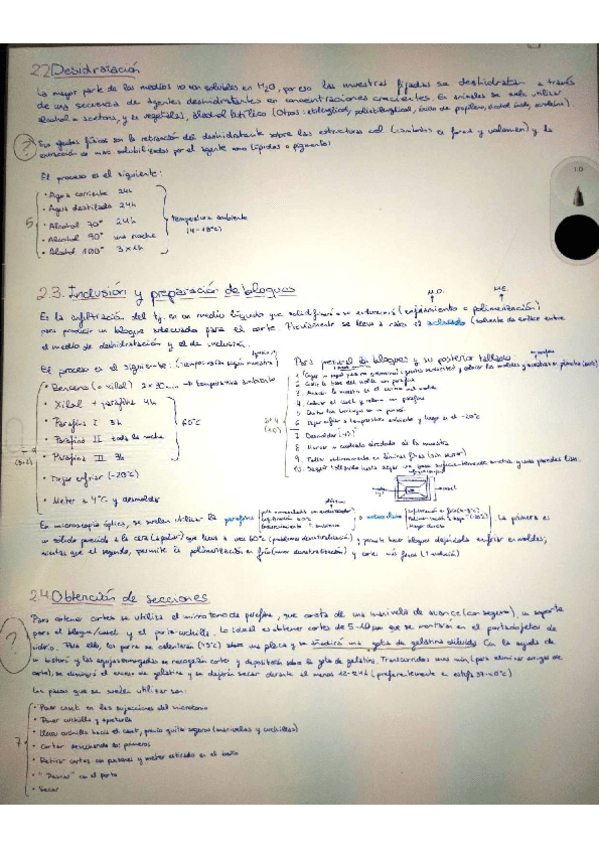 2.2 Desidratación
La mayor parte de los medios no son solubles en H2O, por eso las muestras fijadas se deshidratan a través
de una secuencia de agentes deshidratantes en concentraciones crecientes. En animales se suele utilizar
alcohol o acetona, y en vegetales, alcohol butílico (Otros:
? Sus efectos físicos son la retracción del deshidratante sobre las estructuras cel (cambios en forma y volumen) y la
extracción de mat. solubilizados por el agente como lípidos o pigmentos
El proceso es el siguiente:
• Agua corriente 24h
• Agua destilada 24h
5 • Alcohol 70° 24h temperatura ambiente
• Alcohol 90° una noche
• Alcohol 100° 3x1h
1.0
2.3. Inclusión y preparación de bloques
M.O. M.E.
Es la infiltración del tj. en un medio líquido que solidificará en su entorno (enfriamiento o polimerización)
para producir un bloque adecuado para el corte. Previamente se lleva a cabo el aclarado (solvente de enlace entre
el medio de deshidratación y el de inclusión.
El proceso es el siguiente: (tiempos están según muestra)
• Benceno (o xilol) 2x30min → temperatura ambiente
• Xilol + parafina 4h
• Parafina I 3h 60°C
• Parafina II toda la noche
• Parafina III 3h
• Dejar enfriar (-20°C)
• Meter a 4°C y desmoldar
Para preparar los bloques y su posterior tallado
2. Cubrir la base del molde con parafina
3. Añadir la muestra en el centro del molde
4. Colocar el caset y rellenar con parafina
6. Dejar enfriar a temperatura ambiente y luego a -20°C
7. Desmoldar (4°)
8. Marcar un cuadrado alrededor de la muestra
10. Seguir tallando hasta dejar una base suficientemente ancha y unas paredes lisas.
caset
En microscopía óptica, se suelen utilizar la parafina o metacrilato La primera es
un sólido parecido a la cera que licua a unos 60°C (problemas desnaturalizó) y permite hacer bloques dejándola enfriar en moldes,
mientras que el segundo, permite la polimerización en frío (menor desnaturalización) y cortes más finos (↑ resolución)
2.4 Obtención de secciones
Para obtener cortes se utiliza el microtomo de parafina, que consta de una manivela de avance (con seguro), un soporte
para el bloque/caset y el porta-cuchilla. Lo ideal es obtener cortes de 5-10 µm que se montarán en el portaobjetos de
? vidrio. Para ello, los porta se calentarán sobre una placa y se añadirá una gota de gelatina diluida. Con la ayuda de
un bisturí y las agujas enmangadas se recogerán cortes y depositarán sobre la gota de gelatina. Transcurridos unos min, (para eliminar arrugas de
corte), se eliminará el exceso de gelatina y se dejarán secar durante al menos 12-24h (preferentemente en estufa 37-40°C)
Los pasos que se suelen utilizar son:
• Poner caset en las sujecciones del microtomo
• Poner cuchilla y apretarla
• Llevar cuchilla hacia el caset, previo quitar seguros (manivelas y cuchillas)
7 • Cortar desechando los primeros
• Retirar cortes con pinceles y meter estirado en el baño
• "Pescar" con el porta
• Secar